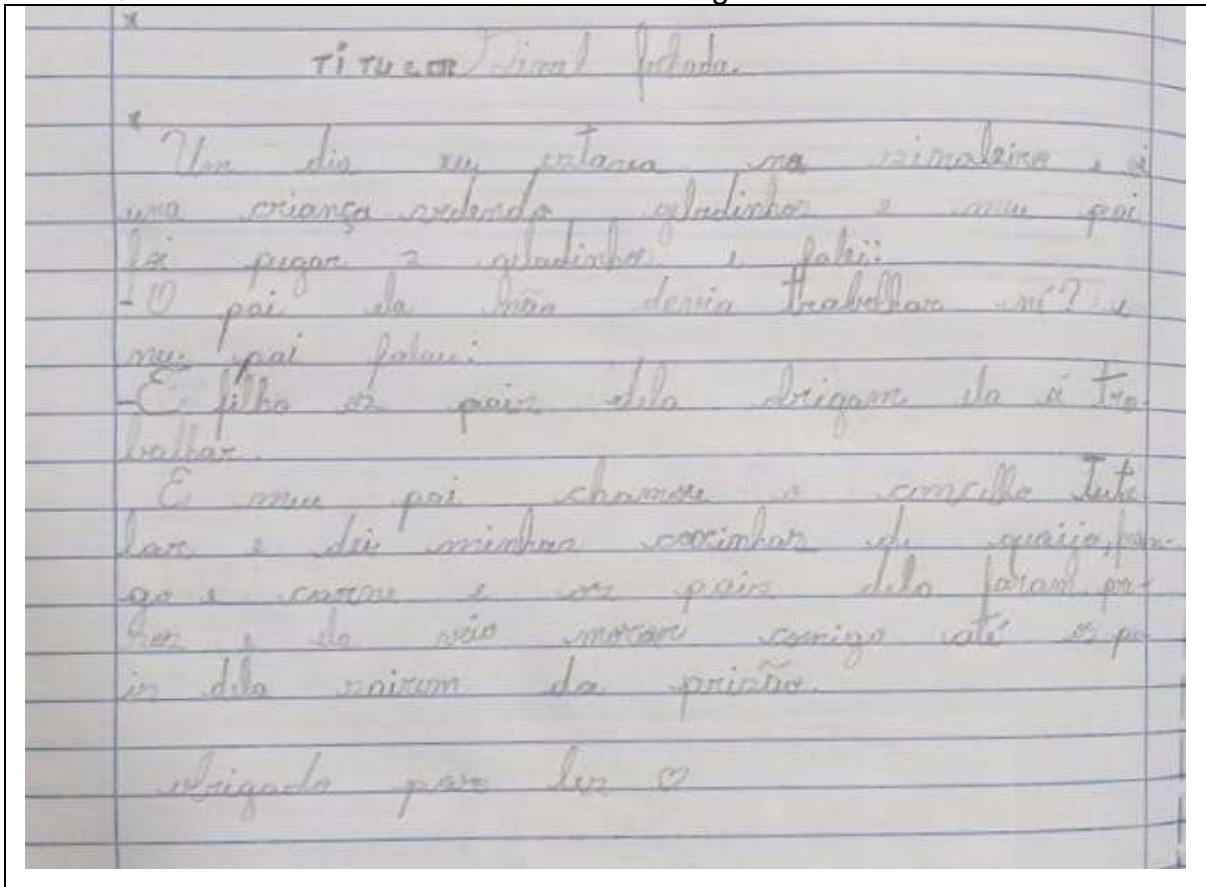 TíTULO Sinal fechado.
Um dia eu estava no sinaleiro e vi
uma criança vedendo geladinhos e meu pai
foi pegar 2 geladinhos e falei:
- O pai ela não devia trabalhar né? e
meu pai falou:
- É filho os pais dela obrigam ela á tra
balhar.
E meu pai chamou o concelho Tute
lar e dei minhas coxinhas de queijo, fran-
go e carne e os pais dela foram pre-
sos e ela veio morar comigo até os pa
is dela sairem da prisão.
obrigado por ler ♡